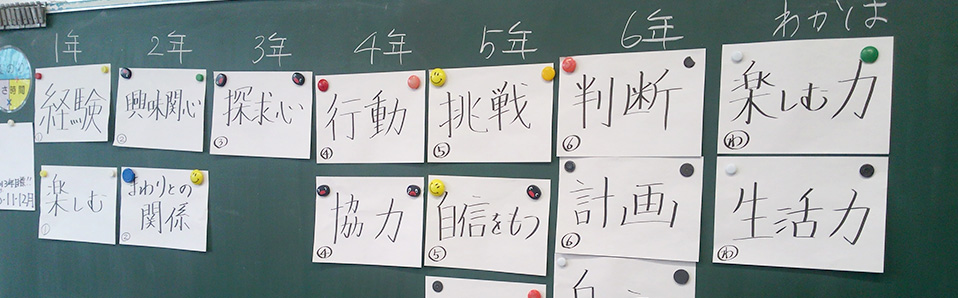 1年
2年
3年
4年
5年
6年
わかば
経験
①
興味関心
②
探求心
③
行動
④
挑戦
⑤
判断
⑥
楽しむ力
わ
楽しむ
①
まわりとの
関係
②
協力
④
自信をもつ
⑤
計画
⑥
生活力
わ
時間